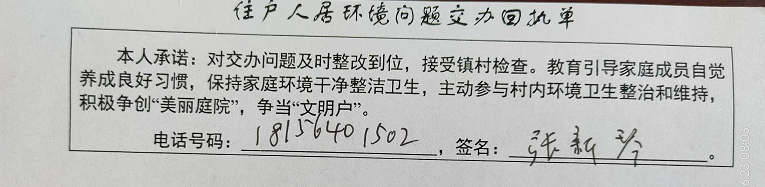 住户人居环境问题交办回执单
本人承诺：对交办问题及时整改到位，接受镇村检查。教育引导家庭成员自觉
养成良好习惯，保持家庭环境干净整洁卫生，主动参与村内环境卫生整治和维持，
积极争创“美丽庭院”，争当“文明户”。
电话号码：18156401502，签名：张新珍。
6.25 08:03